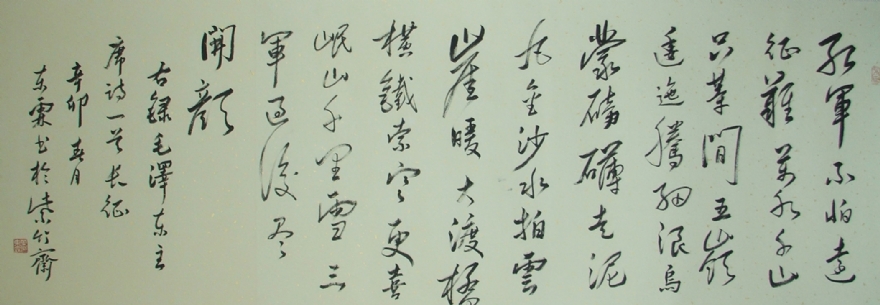 红軍不怕遠
征難萬水千山
只等間五嶺
逶迤騰細浪烏
蒙磅礴走泥
丸金沙水拍雲
崖暖大渡橋
橫鐵索寒更喜
岷山千里雪三
軍過後盡
開顏
右錄毛澤东主
席詩一首長征
辛卯春月
东霖书於紫竹齋